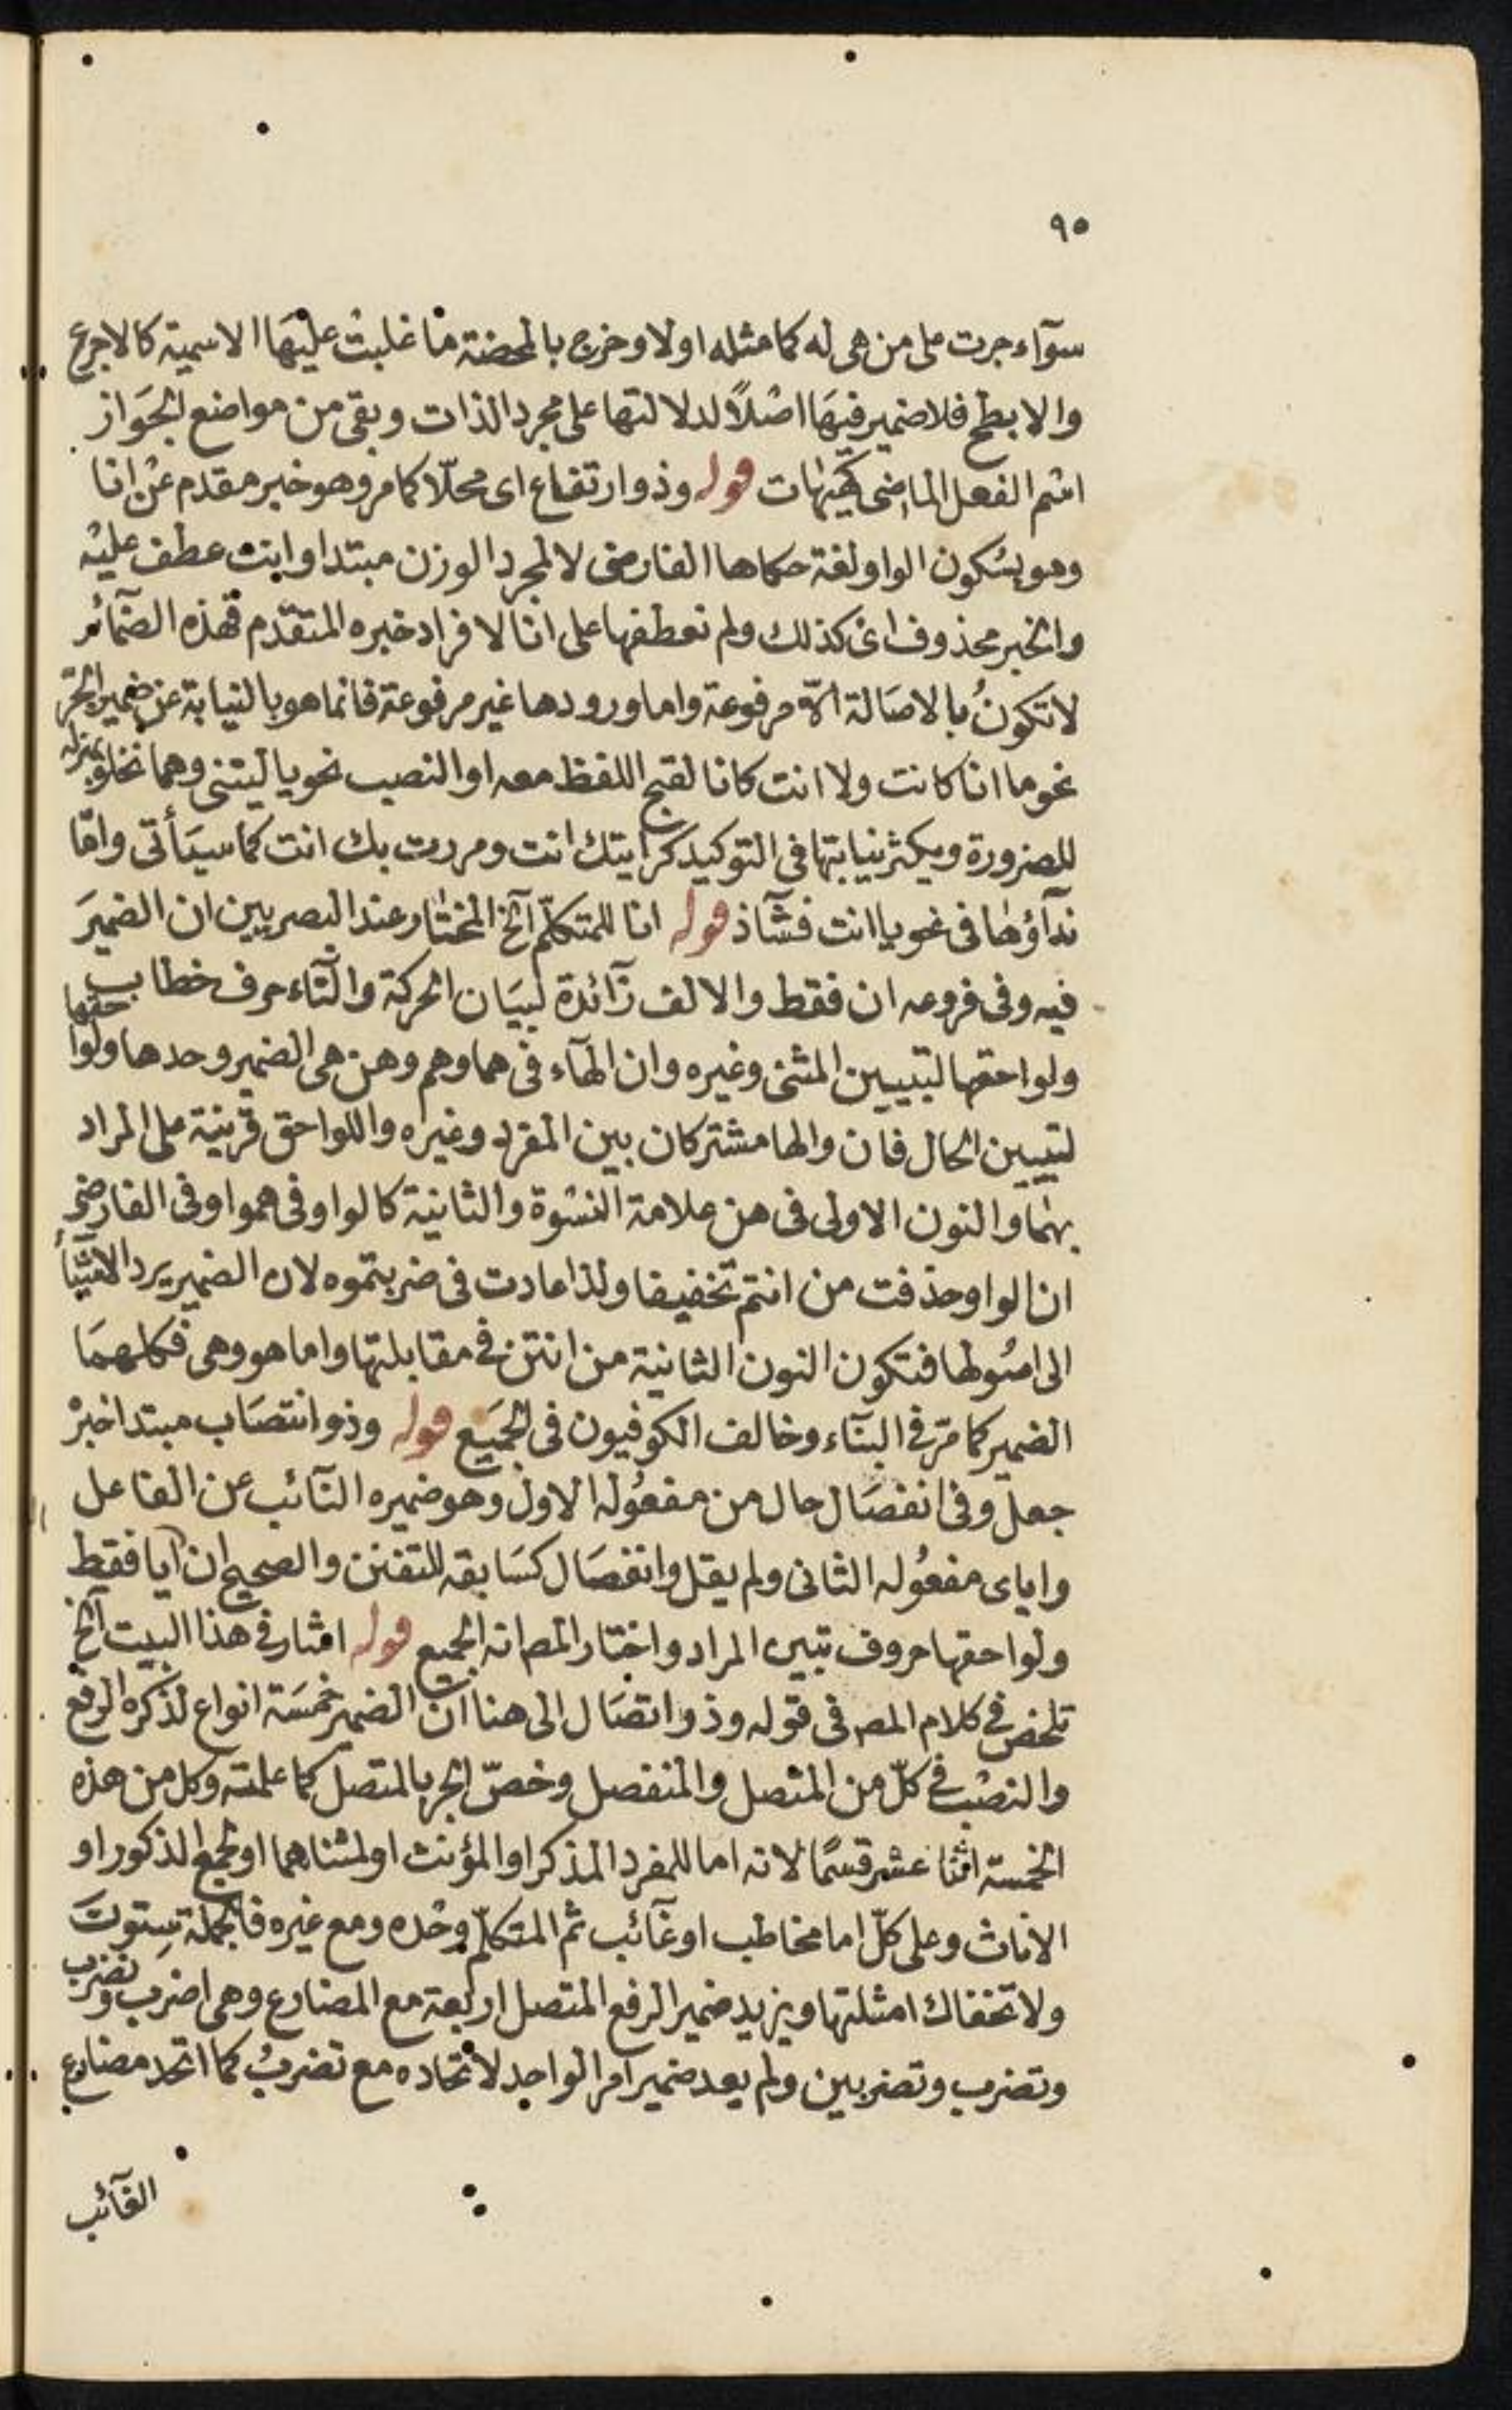 ٩٥
سوآء جرت على من هى له كما مثله اولا وخرج بالمحضة ما غلبت عليها الاسمية كالاجرع
والابطح فلا ضمير فيها اصلاً لدلالتها على مجرد الذات وبقى من مواضع الجواز
اسم الفعل الماضى كهيهات قوله وذو ارتفاع اى محلّا كما مر وهو خبر مقدم عن انا
وهو بسكون الواو لغة حكاها الفارضى لا لمجرد الوزن مبتدا وانت عطف عليه
والخبر محذوف اى كذلك ولم نعطفها على انا لافراد خبره المتقدم فهذه الضمآئر
لا تكونُ بالاصالة الاّ مرفوعة واما ورودها غير مرفوعة فانما هو بالنيابة عن ضمير الجر
نحو ما انا كانت ولا انت كانا لقبح اللفظ معه او النصب نحو يا ليتنى وهما نخلو بمنزلة
للضرورة ويكثر نيابتها فى التوكيد كرايتك انت ومررت بك انت كما سيأتى واما
ندآؤها فى نحو يا انت فشآذ قوله انا للمتكلّم آلخ المختار عند البصريين ان الضميرَ
فيه وفى فروعه ان فقط والالف زآئدة لبيان الحركة والتآء حرف خطاب
ولواحقها لتبيين المثنى وغيره وان الهآء فى هما وهم وهن هى الضمير وحدها ولواحقها
لتبيين الحال فان والها مشتركان بين المفرد وغيره واللواحق قرينة على المراد
بهما والنون الاولى فى هن علامة النسوة والثانية كالواو فى همو اوفى الفارضى
ان الواو حذفت من انتم تخفيفا ولذا عادت فى ضربتموه لان الضمير يرد الاشيآء
الى اصولها فتكون النون الثانية من انتن فى مقابلتها واما هو وهى فكلهما
الضمير كما مرّ فى البنآء وخالف الكوفيون فى الجميع قوله وذو انتصاب مبتدا خبرْ
جعل وفى انفصال حال من مفعوله الاول وهو ضميره النآئب عن الفاعل
واياى مفعوله الثانى ولم يقل وانفصال كسابقه للتفنن والصحيح ان ايا فقط
ولواحقها حروف تبين المراد واختار المص انه الجميع قوله اشار فى هذا البيت آلخ
تلخص فى كلام المص فى قوله وذو اتصال الى هنا ان الضمير خمسة انواع لذكره الرفع
والنصب فى كلّ من المتصل والمنفصل وخصّ الجر بالمتصل كما علمته وكل من هذه
الخمسة اثنا عشر قسمًا لانه اما للمفرد المذكر او المؤنث او لمثناهما او لجمع الذكور او
الاناث وعلى كلّ اما مخاطب او غآئب ثم المتكلّم وحده ومع غيره فالجملة ستونَ
ولا تخفاك امثلتها ويزيد ضمير الرفع المتصل اربعة مع المضارع وهى اضرب ونضرب
وتضرب وتضربين ولم يعد ضمير امر الواحد لاتحاده مع تضربُ كما اتحد مضارع
الغآئب